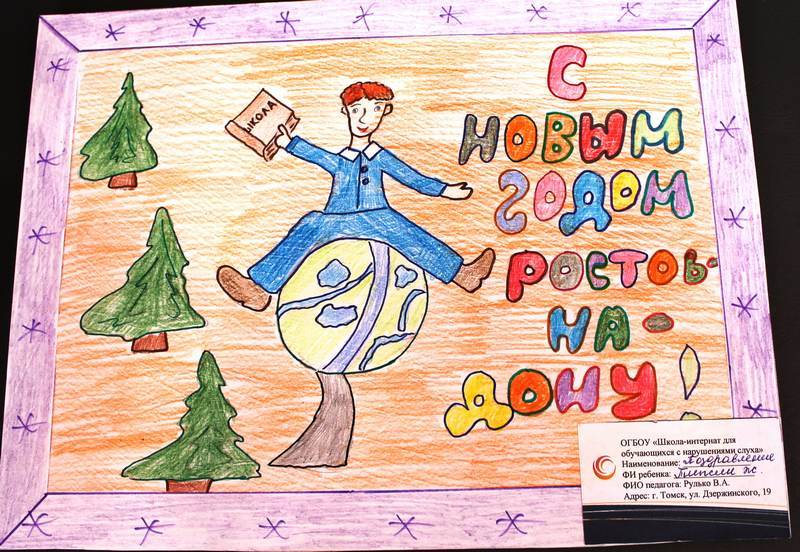 С
НОВЫМ
ГОДОМ
РОСТОВ-
НА-
ДОНУ!
ШКОЛА
ОГБОУ «Школа-интернат для
обучающихся с нарушениями слуха»
Наименование: Поздравление
ФИ ребенка:
ФИО педагога: Рулько В.А.
Адрес: г. Томск, ул. Дзержинского, 19